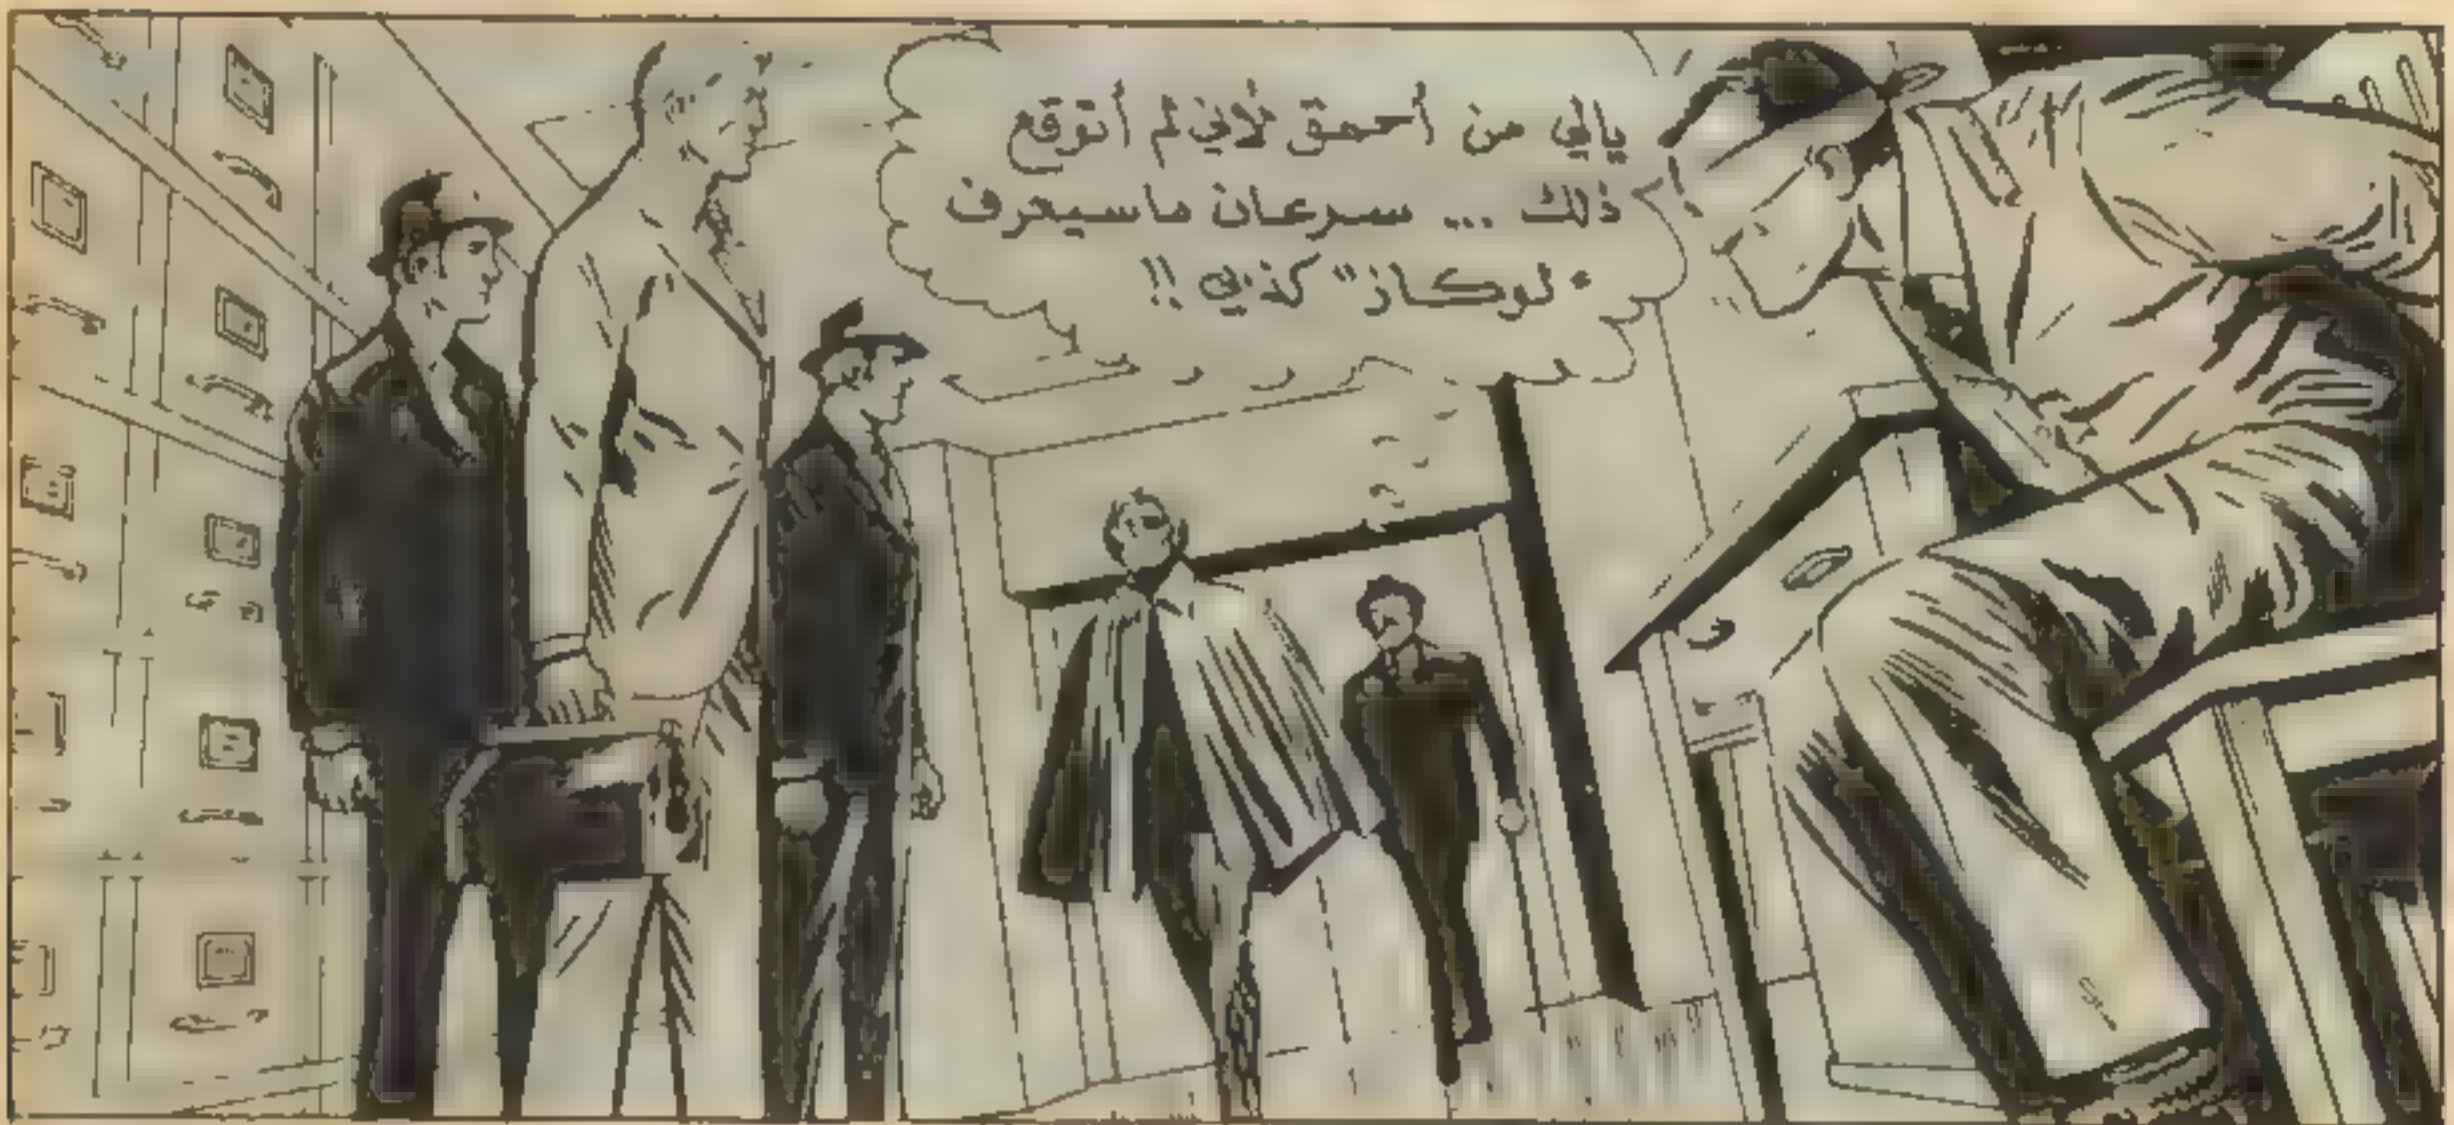 يالي من أحمق لأني لم أتوقع
ذلك ... سرعان ماسيعرف
"لوكاز" كذبي !!